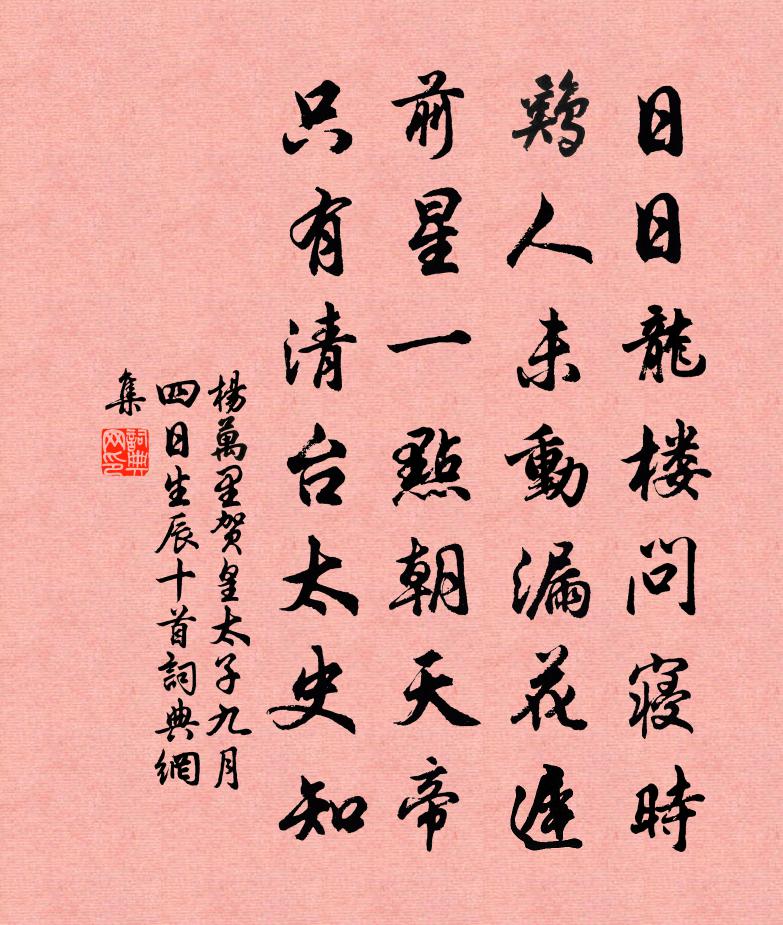 日日龍楼問寢時
鷄人未動漏花遲
前星一點朝天帝
只有清台太史知
楊萬里贺皇太子九月
四日生辰十首詞典網
集
詞典网印